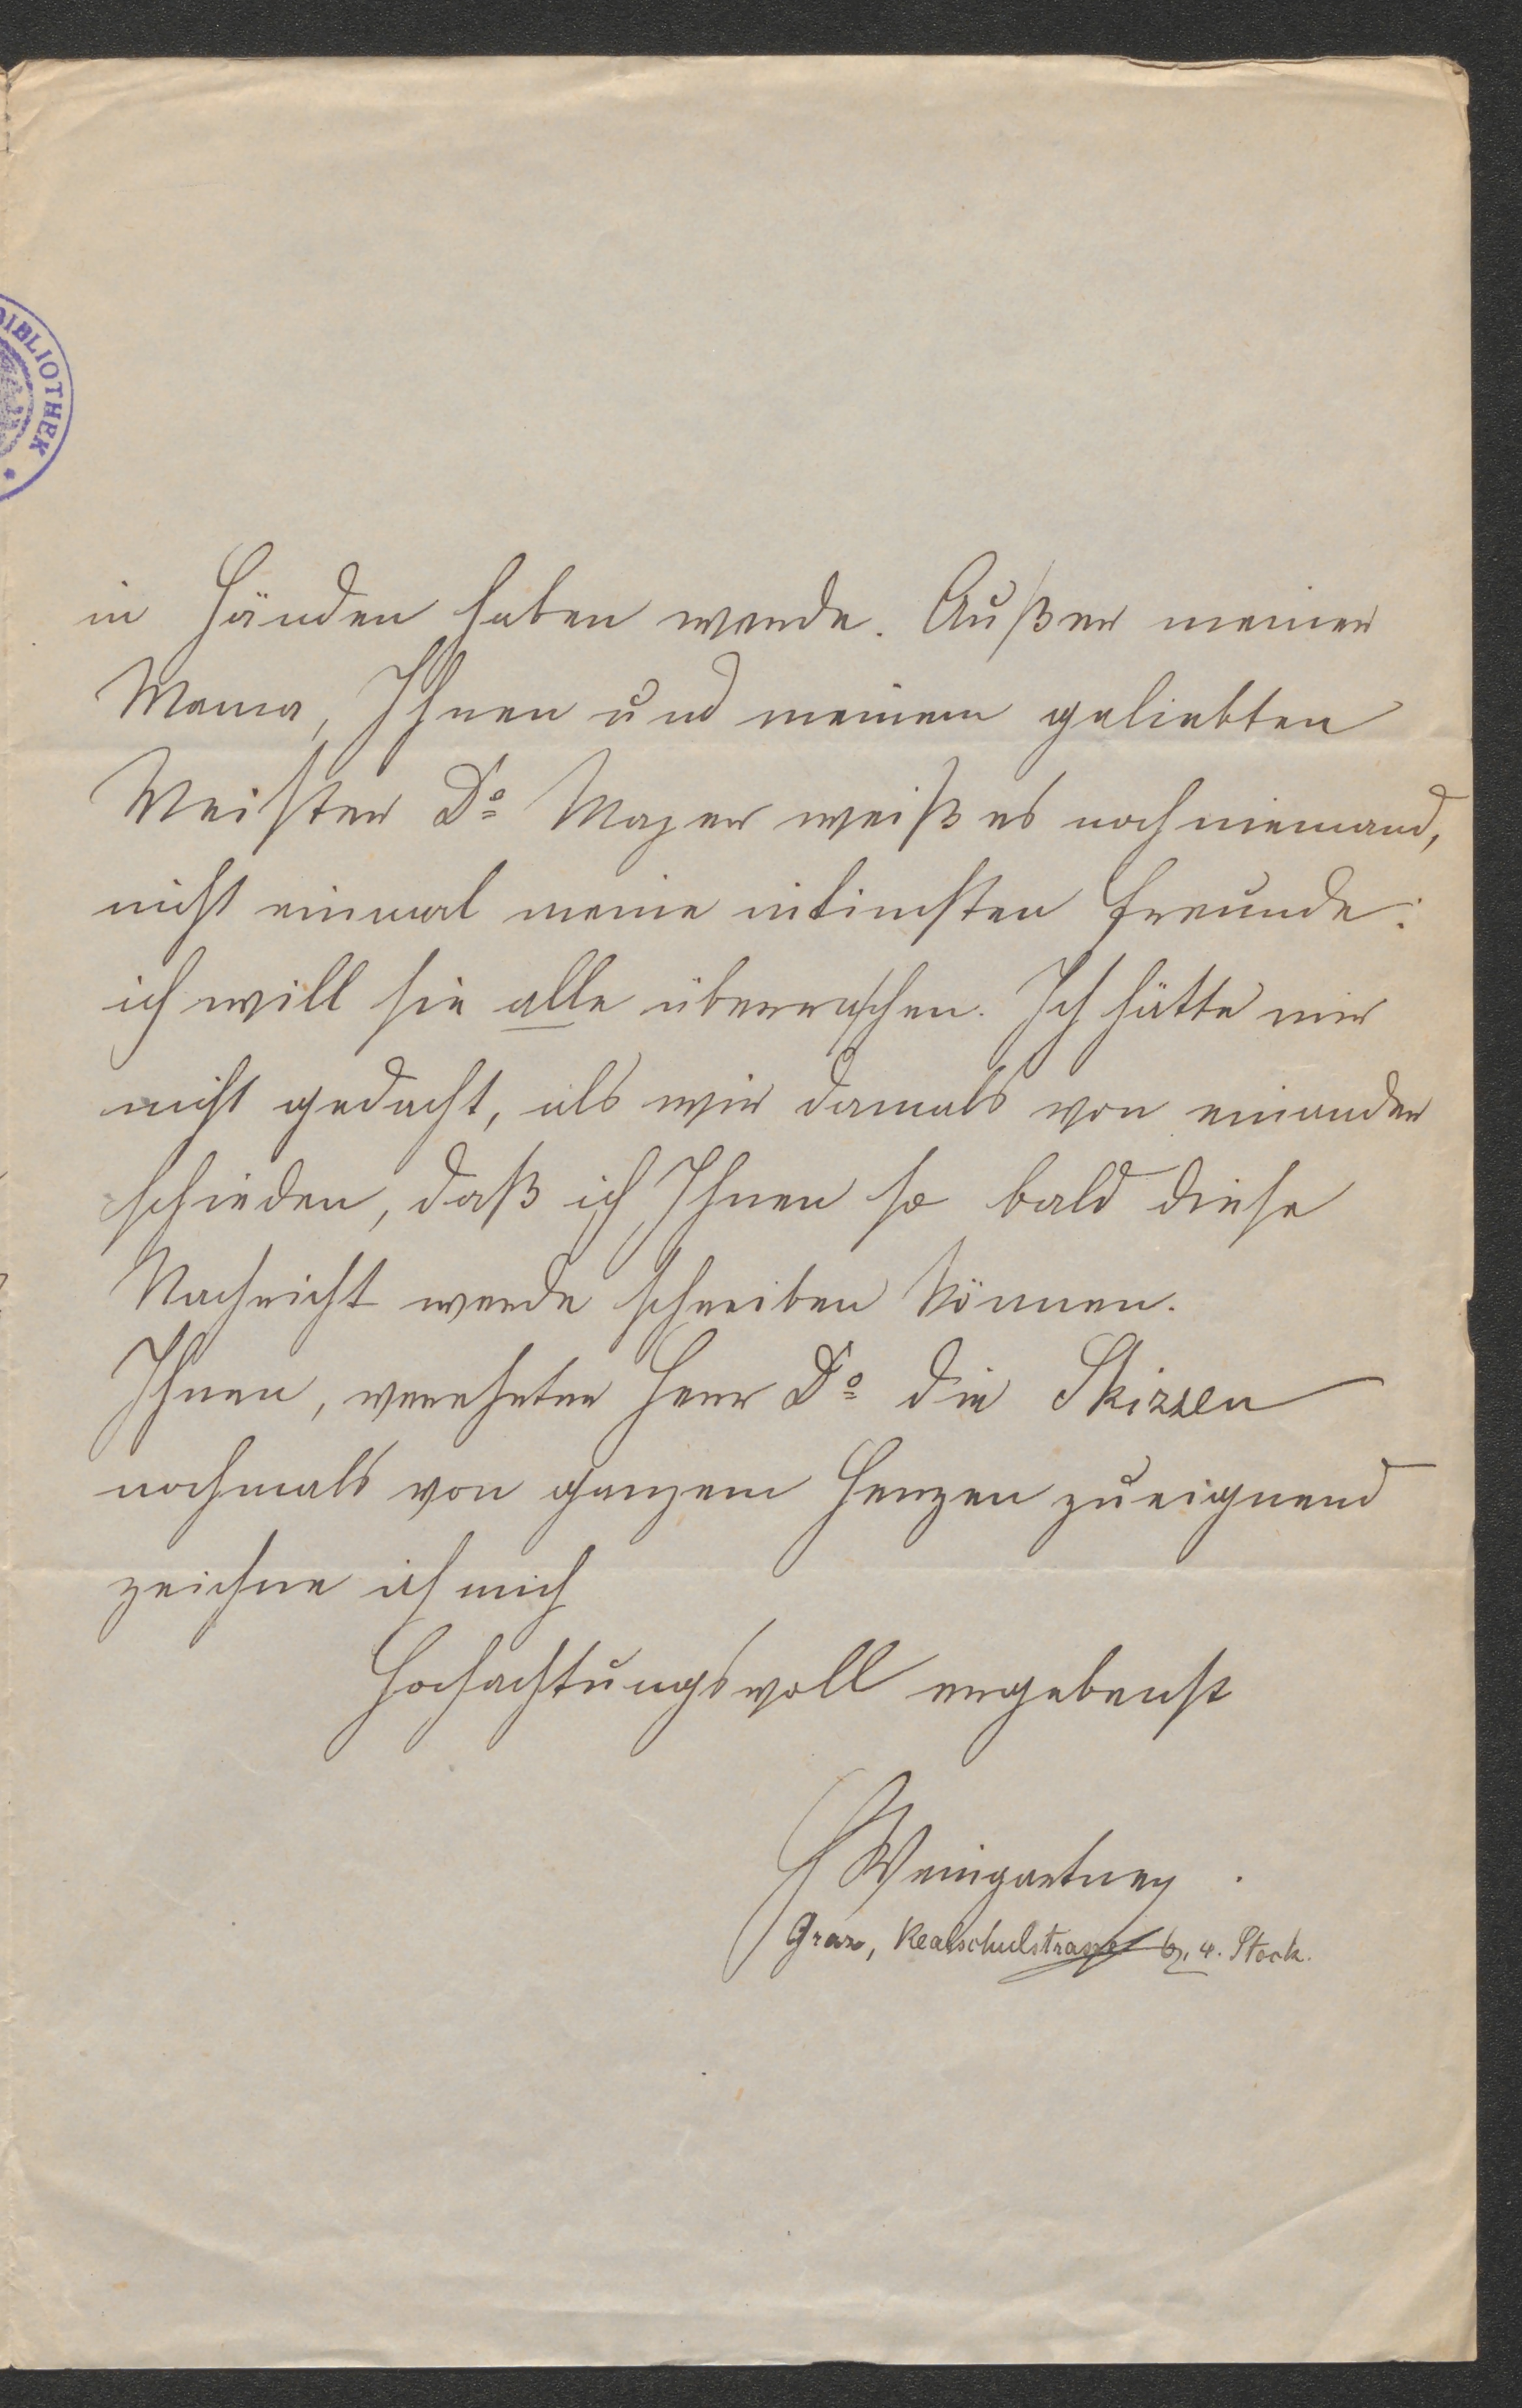 BIBLIOTHEK
in Händen haben werde. Außer meiner
Mama, Ihnen und meinem geliebten
Meister Dr Mayer weiß es noch niemand,
nicht einmal meine intimsten Freunde:
ich will sie alle überraschen. Ich hätte mir
nicht gedacht, als wir damals von einander
schieden, daß ich Ihnen so bald diese
Nachricht werde schreiben können.
Ihnen, verehrter Herr Dr die Skizzen
nochmals von ganzem Herzen zueignend
zeichne ich mich
Hochachtungsvoll ergebenst
Weingartner.
Graz, Realschulstrasse 6, 4. Stock.